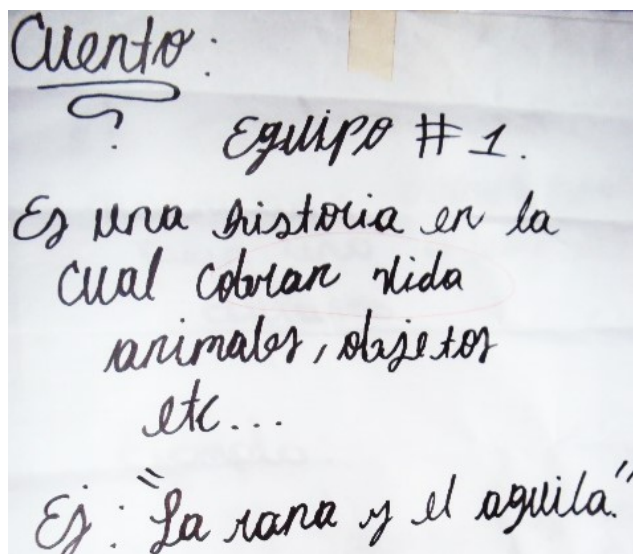 Cuento:
Equipo # 1.
Es una historia en la
cual cobran vida
animales, objetos
etc...
Ej: "La rana y el aguila."